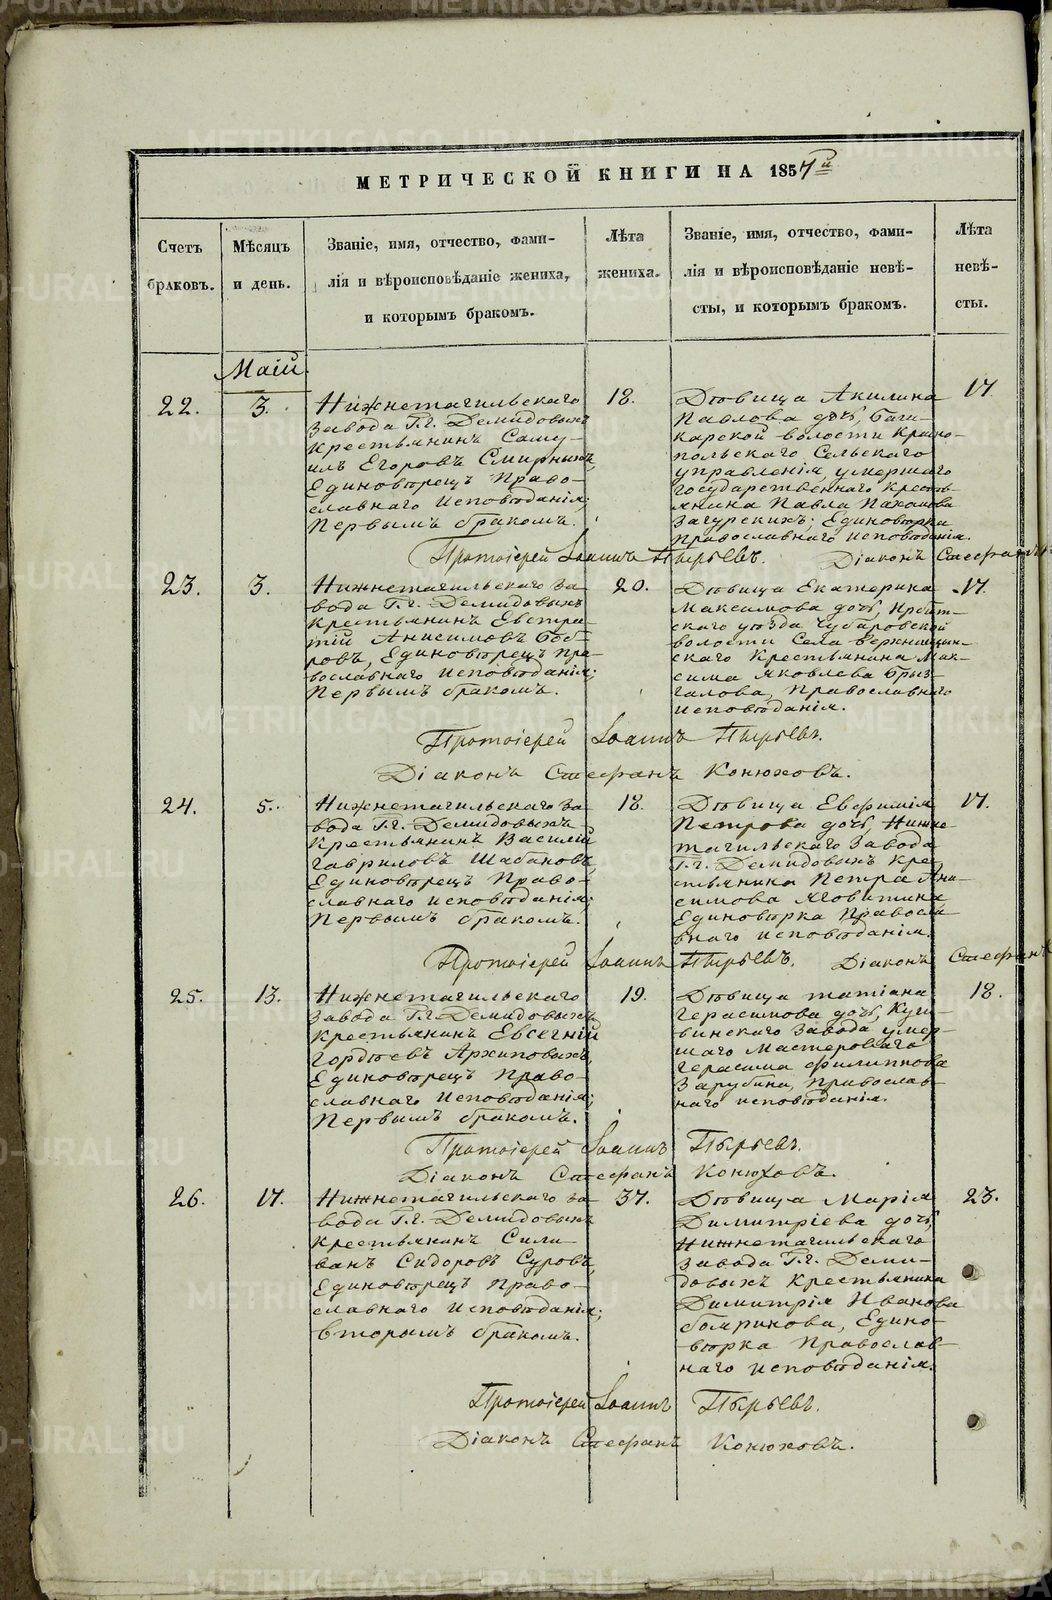 МЕТРИЧЕСКОЙ КНИГИ НА 1857й
Счетъ браковъ.
Мѣсяцъ и день.
Званіе, имя, отчество, фами-
лія и вѣроисповѣданіе жениха,
и которымъ бракомъ.
Лѣта жениха.
Званіе, имя, отчество, фами-
лія и вѣроисповѣданіе невѣ-
сты, и которымъ бракомъ.
Лѣта невѣ-
сты.
Маій.
22.
3.
Нижнетагильскаго
завода Г.г. Демидовыхъ
крестьянинъ Саму-
илъ Егоровъ Смирныхъ,
Единовѣрецъ Право-
славнаго исповѣданія;
Первымъ бракомъ.
18.
Дѣвица Акилина
Павлова дочь,
волости
Сельскаго
управленія, умершаго
государственнаго кресть-
янина Павла Пахомова
Загурскихъ; Единовѣрка
православнаго исповѣданія.
17
Протоіерей Іоаннъ Пырьевъ. Діаконъ Стефанъ
23.
3.
Нижнетагильскаго за-
вода Г.г. Демидовыхъ
крестьянинъ Евстра-
тій Анисимовъ Боб-
ровъ, Единовѣрецъ Пра-
вославнаго исповѣданія;
Первымъ бракомъ.
20.
Дѣвица Екатерина
Максимова дочь, Ирбит-
скаго уѣзда Чубаровской
волости Села
скаго Крестьянина Мак-
сима Яковлева Брыз-
галова, Православнаго
исповѣданія.
17.
Протоіерей Іоаннъ Пырьевъ.
Діаконъ Стефанъ Конюховъ.
24.
5.
Нижнетагильскаго за-
вода Г.г. Демидовыхъ
Крестьянинъ Василій
Гавриловъ Шабановъ,
Единовѣрецъ Право-
славнаго исповѣданія;
Первымъ бракомъ.
18.
Дѣвица Евфимія
Петрова дочь, Нижне-
тагильскаго завода
Г.г. Демидовыхъ Кре-
стьянина Петра Ани-
симова
Единовѣрка Правосла-
внаго исповѣданія.
17.
Протоіерей Іоаннъ Пырьевъ. Діаконъ Стефанъ
25.
13.
Нижнетагильскаго
завода Г.г. Демидовыхъ
крестьянинъ Евсегній
Гордѣевъ Архиповыхъ,
Единовѣрецъ Право-
славнаго исповѣданія;
Первымъ бракомъ.
19.
Дѣвица Татіана
Герасимова дочь, Куш-
винскаго завода умер-
шаго Мастероваго
Герасима Филиппова
Зарубина, Православ-
наго исповѣданія.
18.
Протоіерей Іоаннъ Пырьевъ.
Діаконъ Стефанъ Конюховъ.
26.
17.
Нижнетагильскаго за-
вода Г.г. Демидовыхъ
крестьянинъ Сили-
ванъ Сидоровъ Суровъ,
Единовѣрецъ Право-
славнаго исповѣданія;
вторымъ бракомъ.
37.
Дѣвица Марія
Димитріева дочь,
Нижнетагильскаго
завода Г.г. Деми-
довыхъ крестьянина
Димитрія Иванова
Едино-
вѣрка Православ-
наго исповѣданія.
23.
Протоіерей Іоаннъ Пырьевъ.
Діаконъ Стефанъ Конюховъ.
METRIKI.GASO-URAL.RU